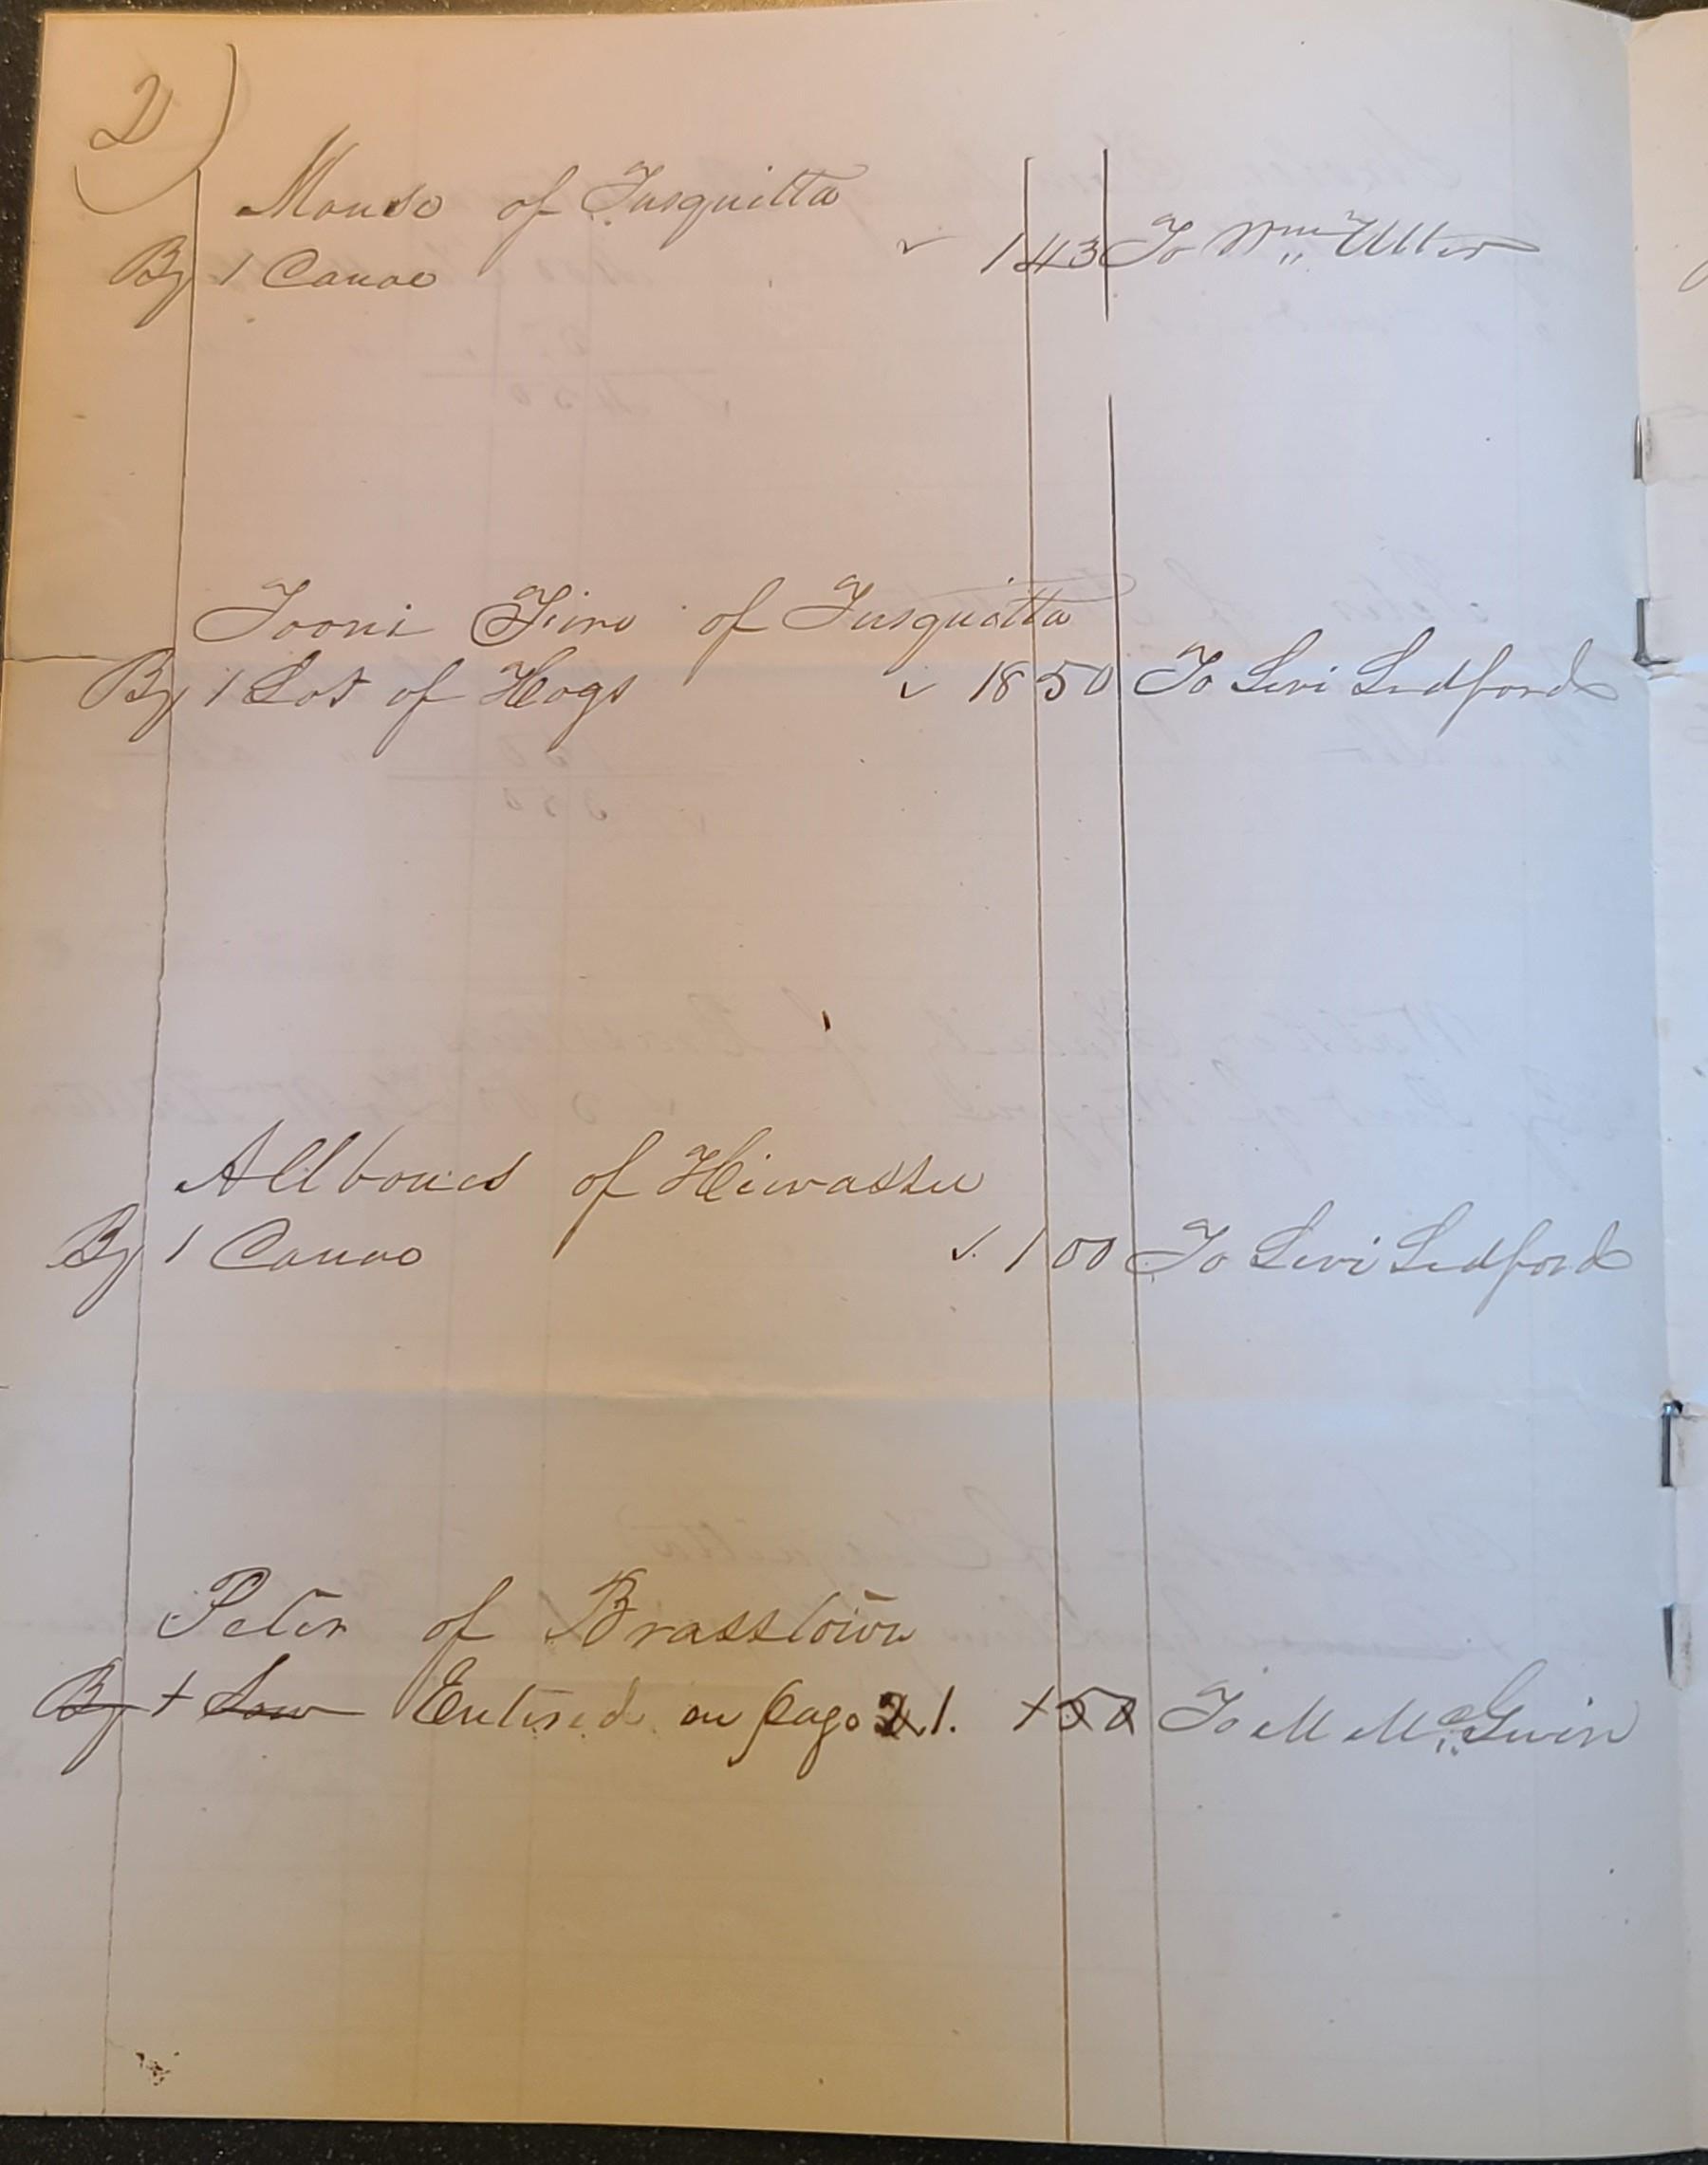 2)
Mouse of Tusquitta
By 1 Canoe ✓ 1 43 To Wm Utter
Tooni of Tusquitta
By 1 Lot of Hogs ✓ 18 50 To Levi Ledford
Allbones of Hiwassee
By 1 Canoe ✓ 1 00 To Levi Ledford
Peter of Brasstown
By 1 Entered on page 21. 1 50 To M McGuin